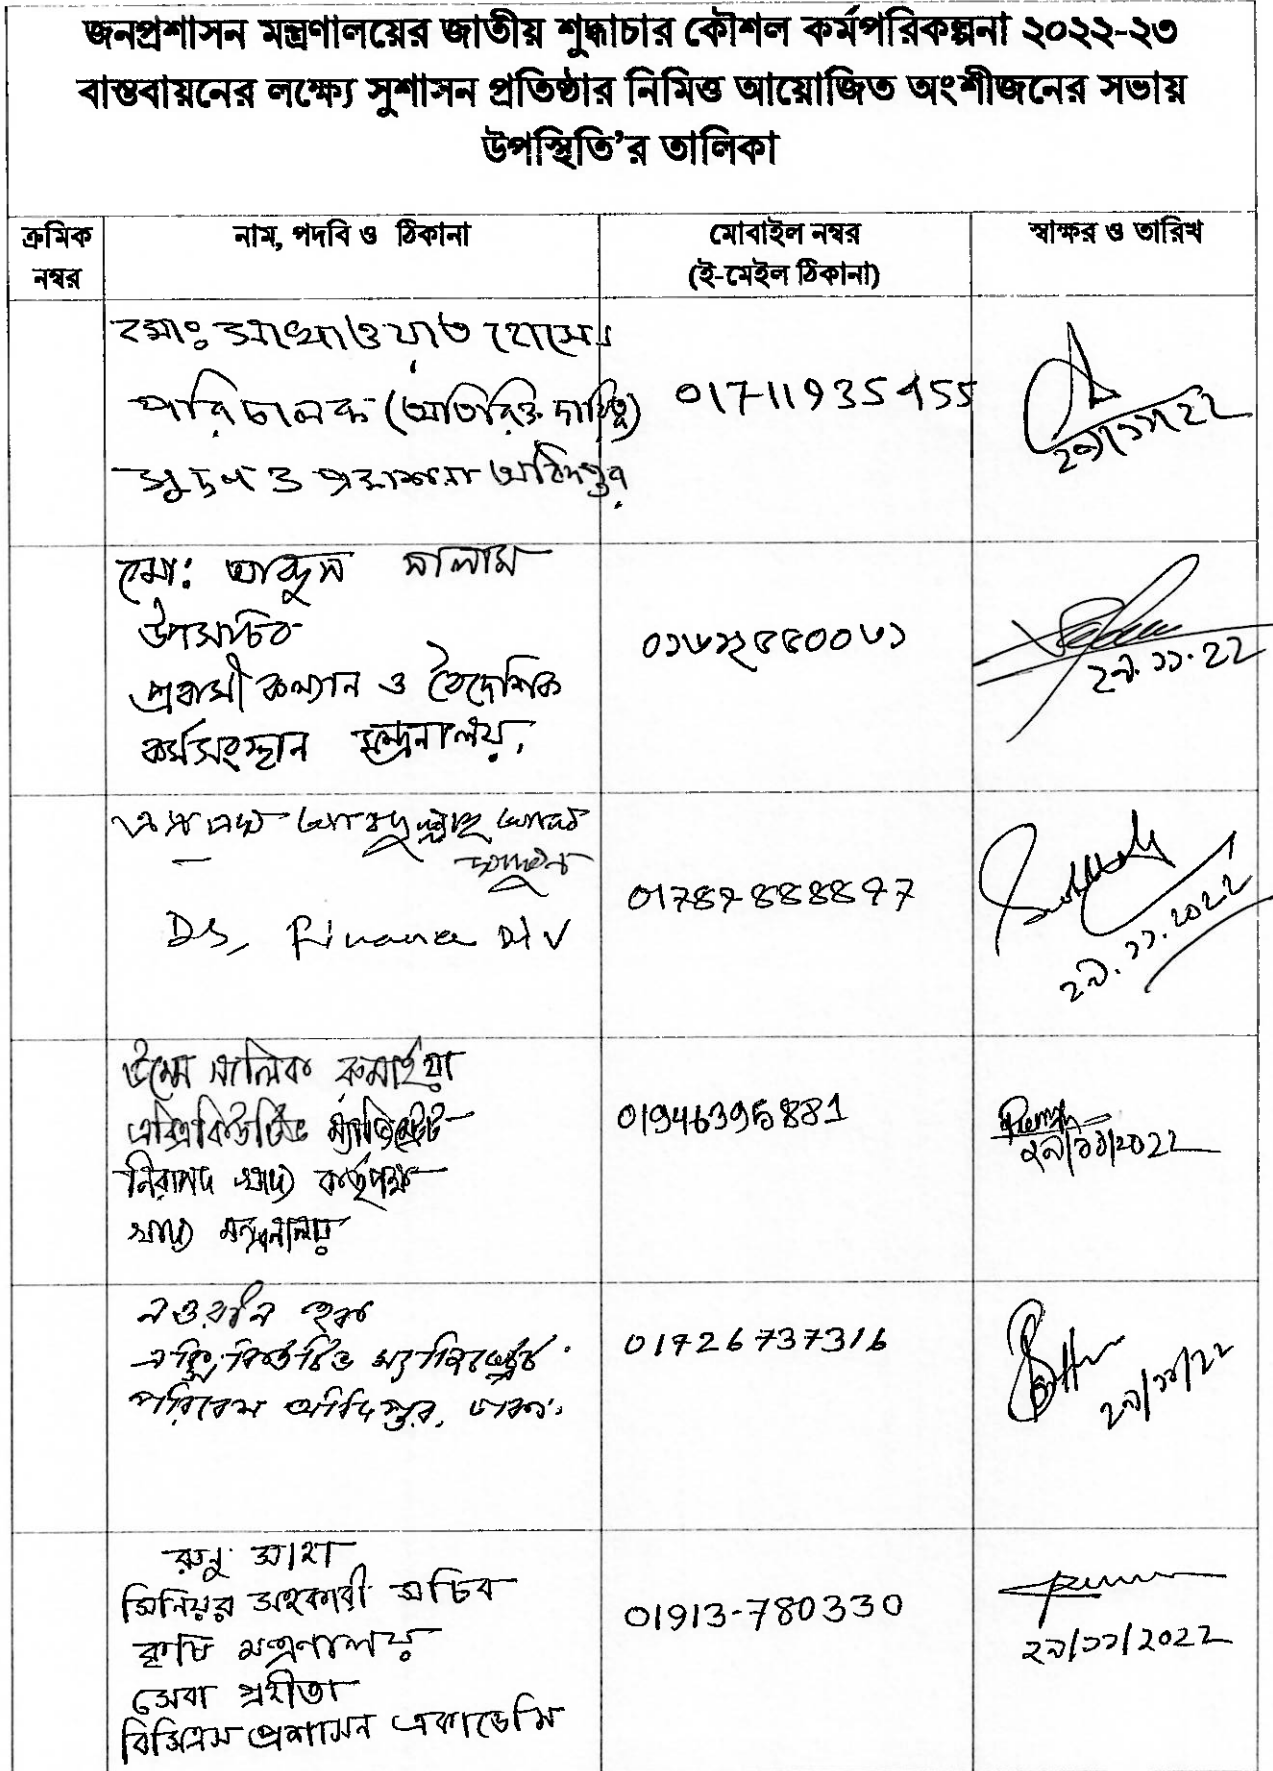 জনপ্রশাসন মন্ত্রণালয়ের জাতীয় শুদ্ধাচার কৌশল কর্মপরিকল্পনা ২০২২-২৩
বাস্তবায়নের লক্ষ্যে সুশাসন প্রতিষ্ঠার নিমিত্ত আয়োজিত অংশীজনের সভায়
উপস্থিতি’র তালিকা
ক্রমিক নম্বর
নাম, পদবি ও ঠিকানা
মোবাইল নম্বর
(ই-মেইল ঠিকানা)
স্বাক্ষর ও তারিখ
মোঃ সাখাওয়াত হোসেন
পরিচালক (অতিরিক্ত দায়িত্ব)
মুদ্রণ ও প্রকাশনা অধিদপ্তর
২৯/১১/22
মো: আব্দুস সালাম
উপসচিব
প্রবাসী কল্যান ও বৈদেশিক
কর্মসংস্থান মন্ত্রনালয়.
২৯.১১.22
DS, Finance Div
01787888897
২৯.১১.2022
উম্মে সালিক রুমাইয়া
এক্সিকিউটিভ ম্যাজিস্ট্রেট
নিরাপদ খাদ্য কর্তৃপক্ষ
খাদ্য মন্ত্রনালয়
01946395881
২৯/১১/2022
নওরীন হক
এক্সিকিউটিভ ম্যাজিস্ট্রেট.
পরিবেশ অধিদপ্তর, ঢাকা.
01726737316
২৯/১১/22
রুনু সাহা
সিনিয়র সহকারী সচিব
কৃষি মন্ত্রণালয়
সেবা গ্রহীতা
বিসিএস প্রশাসন একাডেমি
01913-780330
২৯/১১/2022